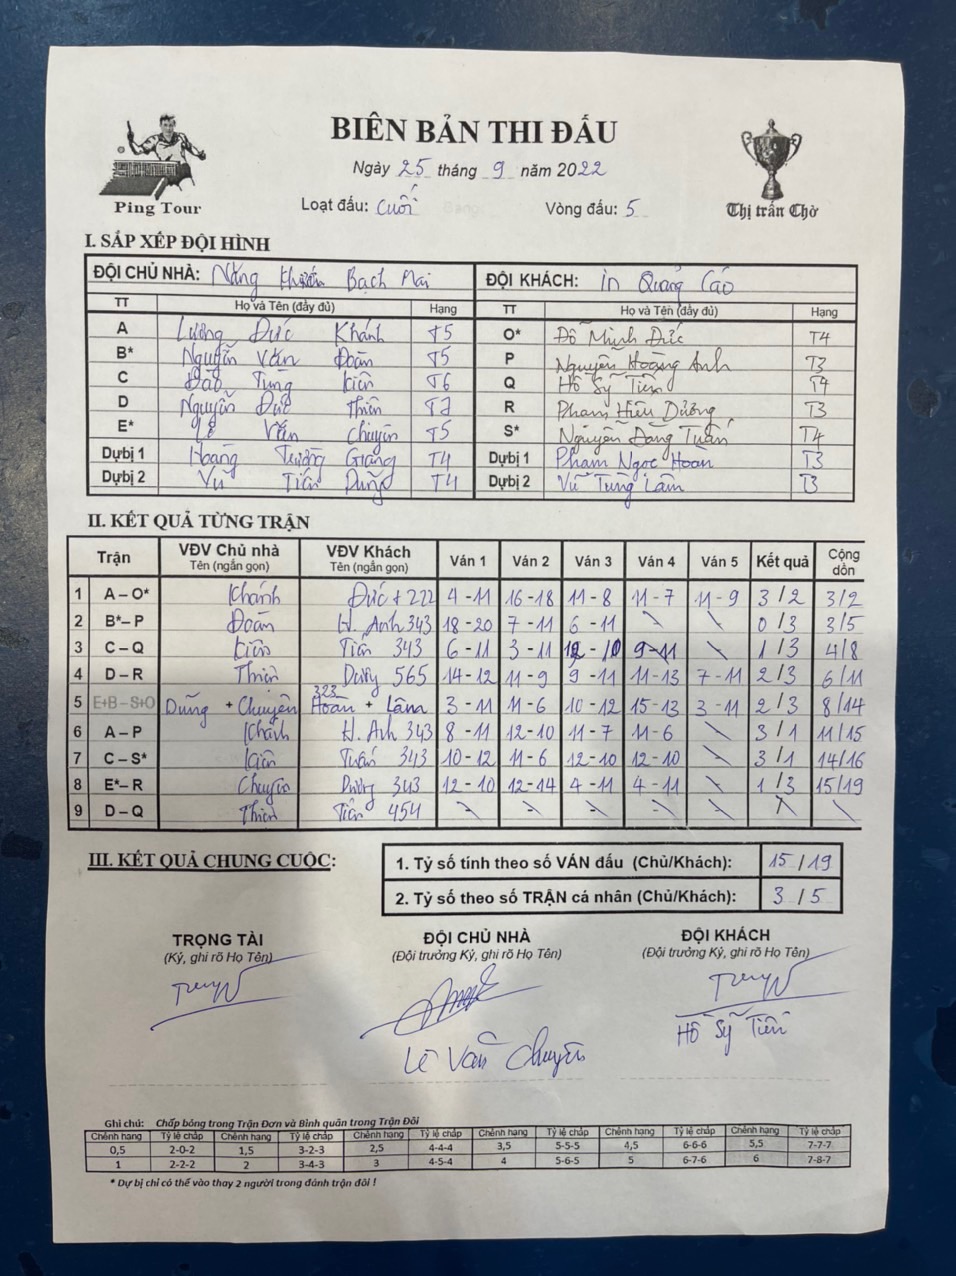 BIÊN BẢN THI ĐẤU
Ngày 25 tháng 9 năm 2022
Ping Tour
Loạt đấu: Cuối Vòng đấu: 5
Thị trấn Chờ
I. SẮP XẾP ĐỘI HÌNH
ĐỘI CHỦ NHÀ: Năng Khiếu Bạch Mai ĐỘI KHÁCH: In Quảng Cáo
TT Họ và Tên (đầy đủ) Hạng TT Họ và Tên (đầy đủ) Hạng
A Lương Đức Khánh T5 O* Đỗ Minh Đức T4
B* Nguyễn Văn Đoàn T5 P Nguyễn Hoàng Anh T3
C Đào Tùng Kiên T6 Q Hồ Sỹ Tiến T4
D Nguyễn Đức Thiên R Phạm Hiếu Dương T3
E* Lê Văn Chuyên T5 S* Nguyễn Đăng Tuấn T4
Dự bị 1 Hoàng Trường Giang T4 Dự bị 1 Phạm Ngọc Hoàn T3
Dự bị 2 Vũ Tiến Dũng T4 Dự bị 2 Vũ Tùng Lâm T3
II. KẾT QUẢ TỪNG TRẬN
Trận VĐV Chủ nhà VĐV Khách Ván 1 Ván 2 Ván 3 Ván 4 Ván 5 Kết quả Cộng dồn
Tên (ngắn gọn) Tên (ngắn gọn)
1 A – O* Khánh Đức + 222 4 - 11 16 - 18 11 - 8 11 - 7 11 - 9 3 / 2 3/2
2 B* – P Đoàn H. Anh 343 18 - 20 7 - 11 6 - 11 0 / 3 3/5
3 C – Q Kiên Tiến 343 6 - 11 3 - 11 12 - 10 9 - 11 1 / 3 4/8
4 D – R Thiên Dương 565 14 - 12 11 - 9 9 - 11 11 - 13 7 - 11 2 / 3 6/11
5 E+B – S+O Dũng + Chuyên 323 Hoàn + Lâm 3 - 11 11 - 6 10 - 12 15 - 13 3 - 11 2 / 3 8/14
6 A – P Khánh H. Anh 343 8 - 11 12 - 10 11 - 7 11 - 6 3 / 1 11/15
7 C – S* Kiên Tuấn 343 10 - 12 11 - 6 12 - 10 12 - 10 3 / 1 14/16
8 E* – R Chuyên Dương 343 12 - 10 12 - 14 4 - 11 4 - 11 1 / 3 15/19
9 D – Q Thiên Tiến 454
III. KẾT QUẢ CHUNG CUỘC:
1. Tỷ số tính theo số VÁN đấu (Chủ/Khách): 15 / 19
2. Tỷ số theo số TRẬN cá nhân (Chủ/Khách): 3 / 5
TRỌNG TÀI ĐỘI CHỦ NHÀ ĐỘI KHÁCH
(Ký, ghi rõ Họ Tên) (Đội trưởng Ký, ghi rõ Họ Tên) (Đội trưởng Ký, ghi rõ Họ Tên)
Lê Văn Chuyên Hồ Sỹ Tiến
Ghi chú: Chấp bóng trong Trận Đơn và Bình quân trong Trận Đôi
Chênh hạng Tỷ lệ chấp Chênh hạng Tỷ lệ chấp Chênh hạng Tỷ lệ chấp Chênh hạng Tỷ lệ chấp Chênh hạng Tỷ lệ chấp Chênh hạng Tỷ lệ chấp
0,5 2-0-2 1,5 3-2-3 2,5 4-4-4 3,5 5-5-5 4,5 6-6-6 5,5 7-7-7
1 2-2-2 2 3-4-3 3 4-5-4 4 5-6-5 5 6-7-6 6 7-8-7
* Dự bị chỉ có thể vào thay 2 người trong đánh trận đôi !